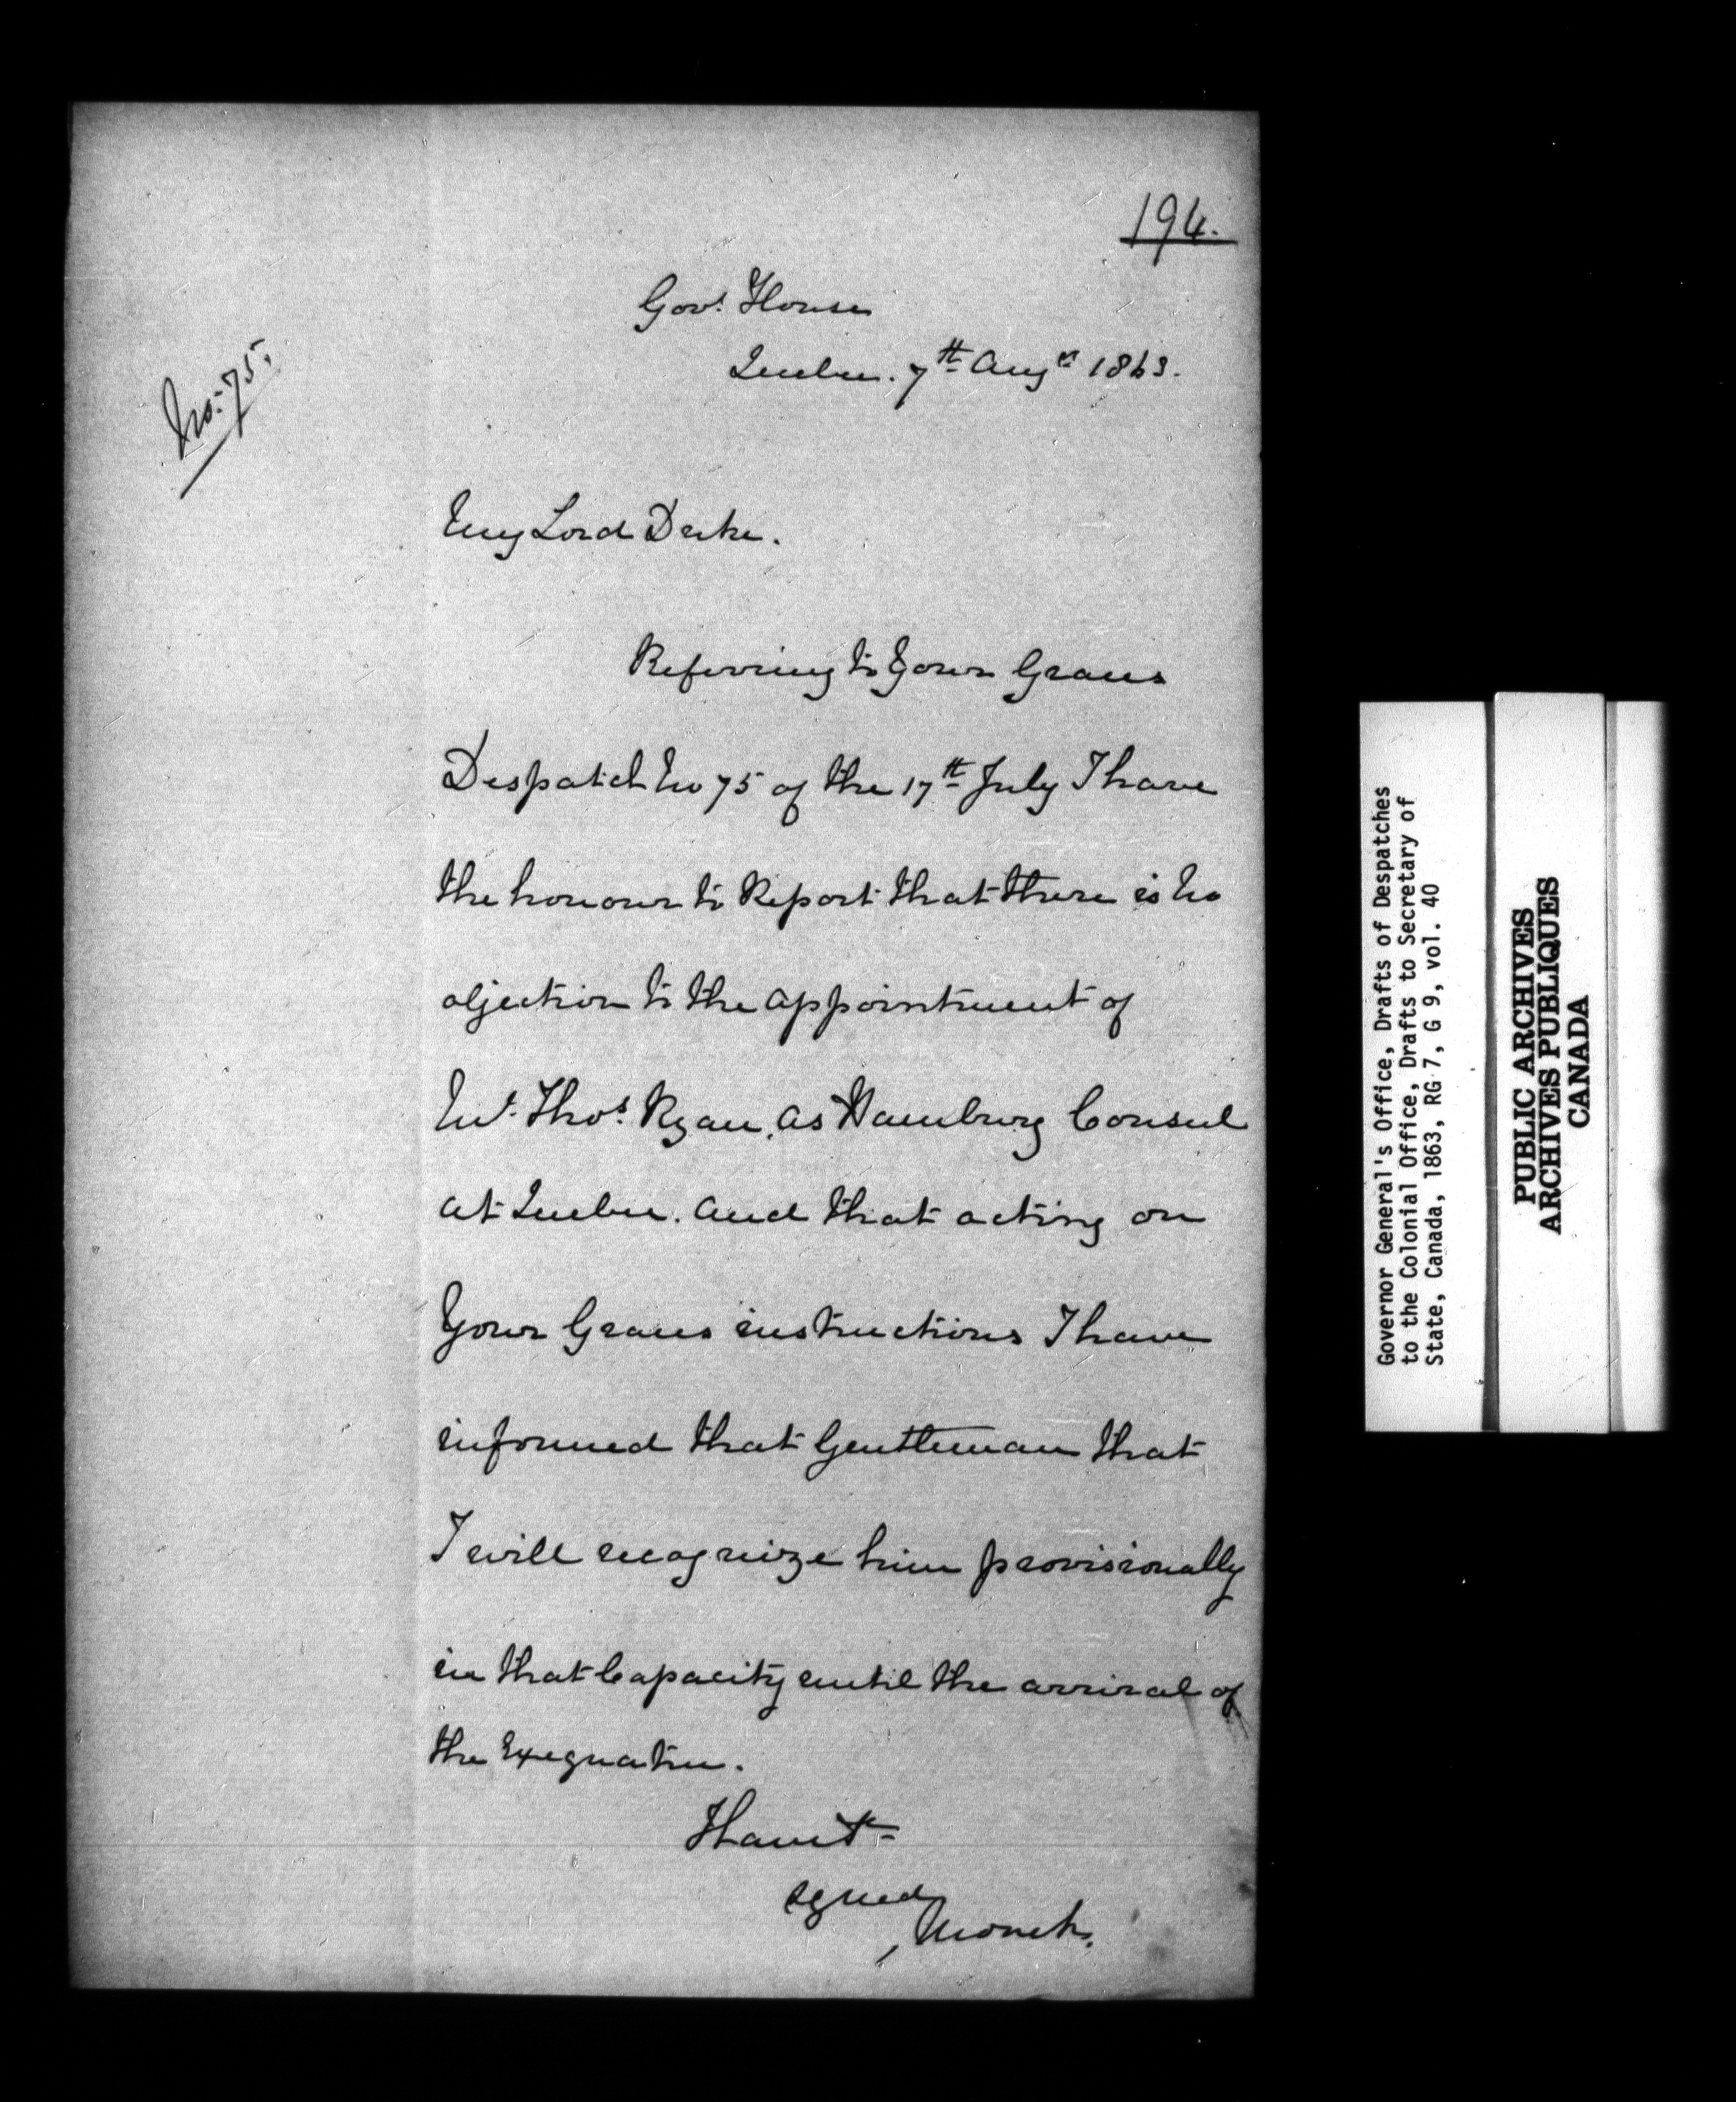 194.
Govt. House
Quebec. 7th Augst 1863.
No. 75.
My Lord Duke.
Referring to Your Graces
Despatch No 75 of the 17th July I have
the honour to Report that there is no
objection to the appointment of
Mr. Thos. Ryan, as Hamburg Consul
at Quebec. and that acting on
Your Graces instructions I have
informed that Gentleman that
I will recognize him provisionally
in that Capacity until the arrival of
the Exequatur.
I have &c
signed
Monck.
Governor General's Office, Drafts of Despatches
to the Colonial Office, Drafts to Secretary of
State, Canada, 1863, RG 7, G 9, vol. 40
PUBLIC ARCHIVES
ARCHIVES PUBLIQUES
CANADA